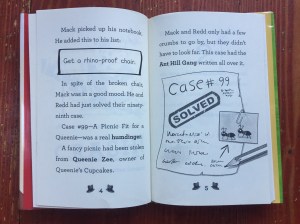 Mack picked up his notebook.
He added this to his list:
Get a rhino-proof chair.
In spite of the broken chair,
Mack was in a good mood. He and
Redd had just solved their ninety-
ninth case.
Case #99—A Picnic Fit for a
Queenie—was a real humdinger!
A fancy picnic had been stolen
from Queenie Zee, owner of
Queenie's Cupcakes.
4
Mack and Redd only had a few
crumbs to go by, but they didn't
have to look far. This case had the
Ant Hill Gang written all over it.
Case #99
SOLVED
5